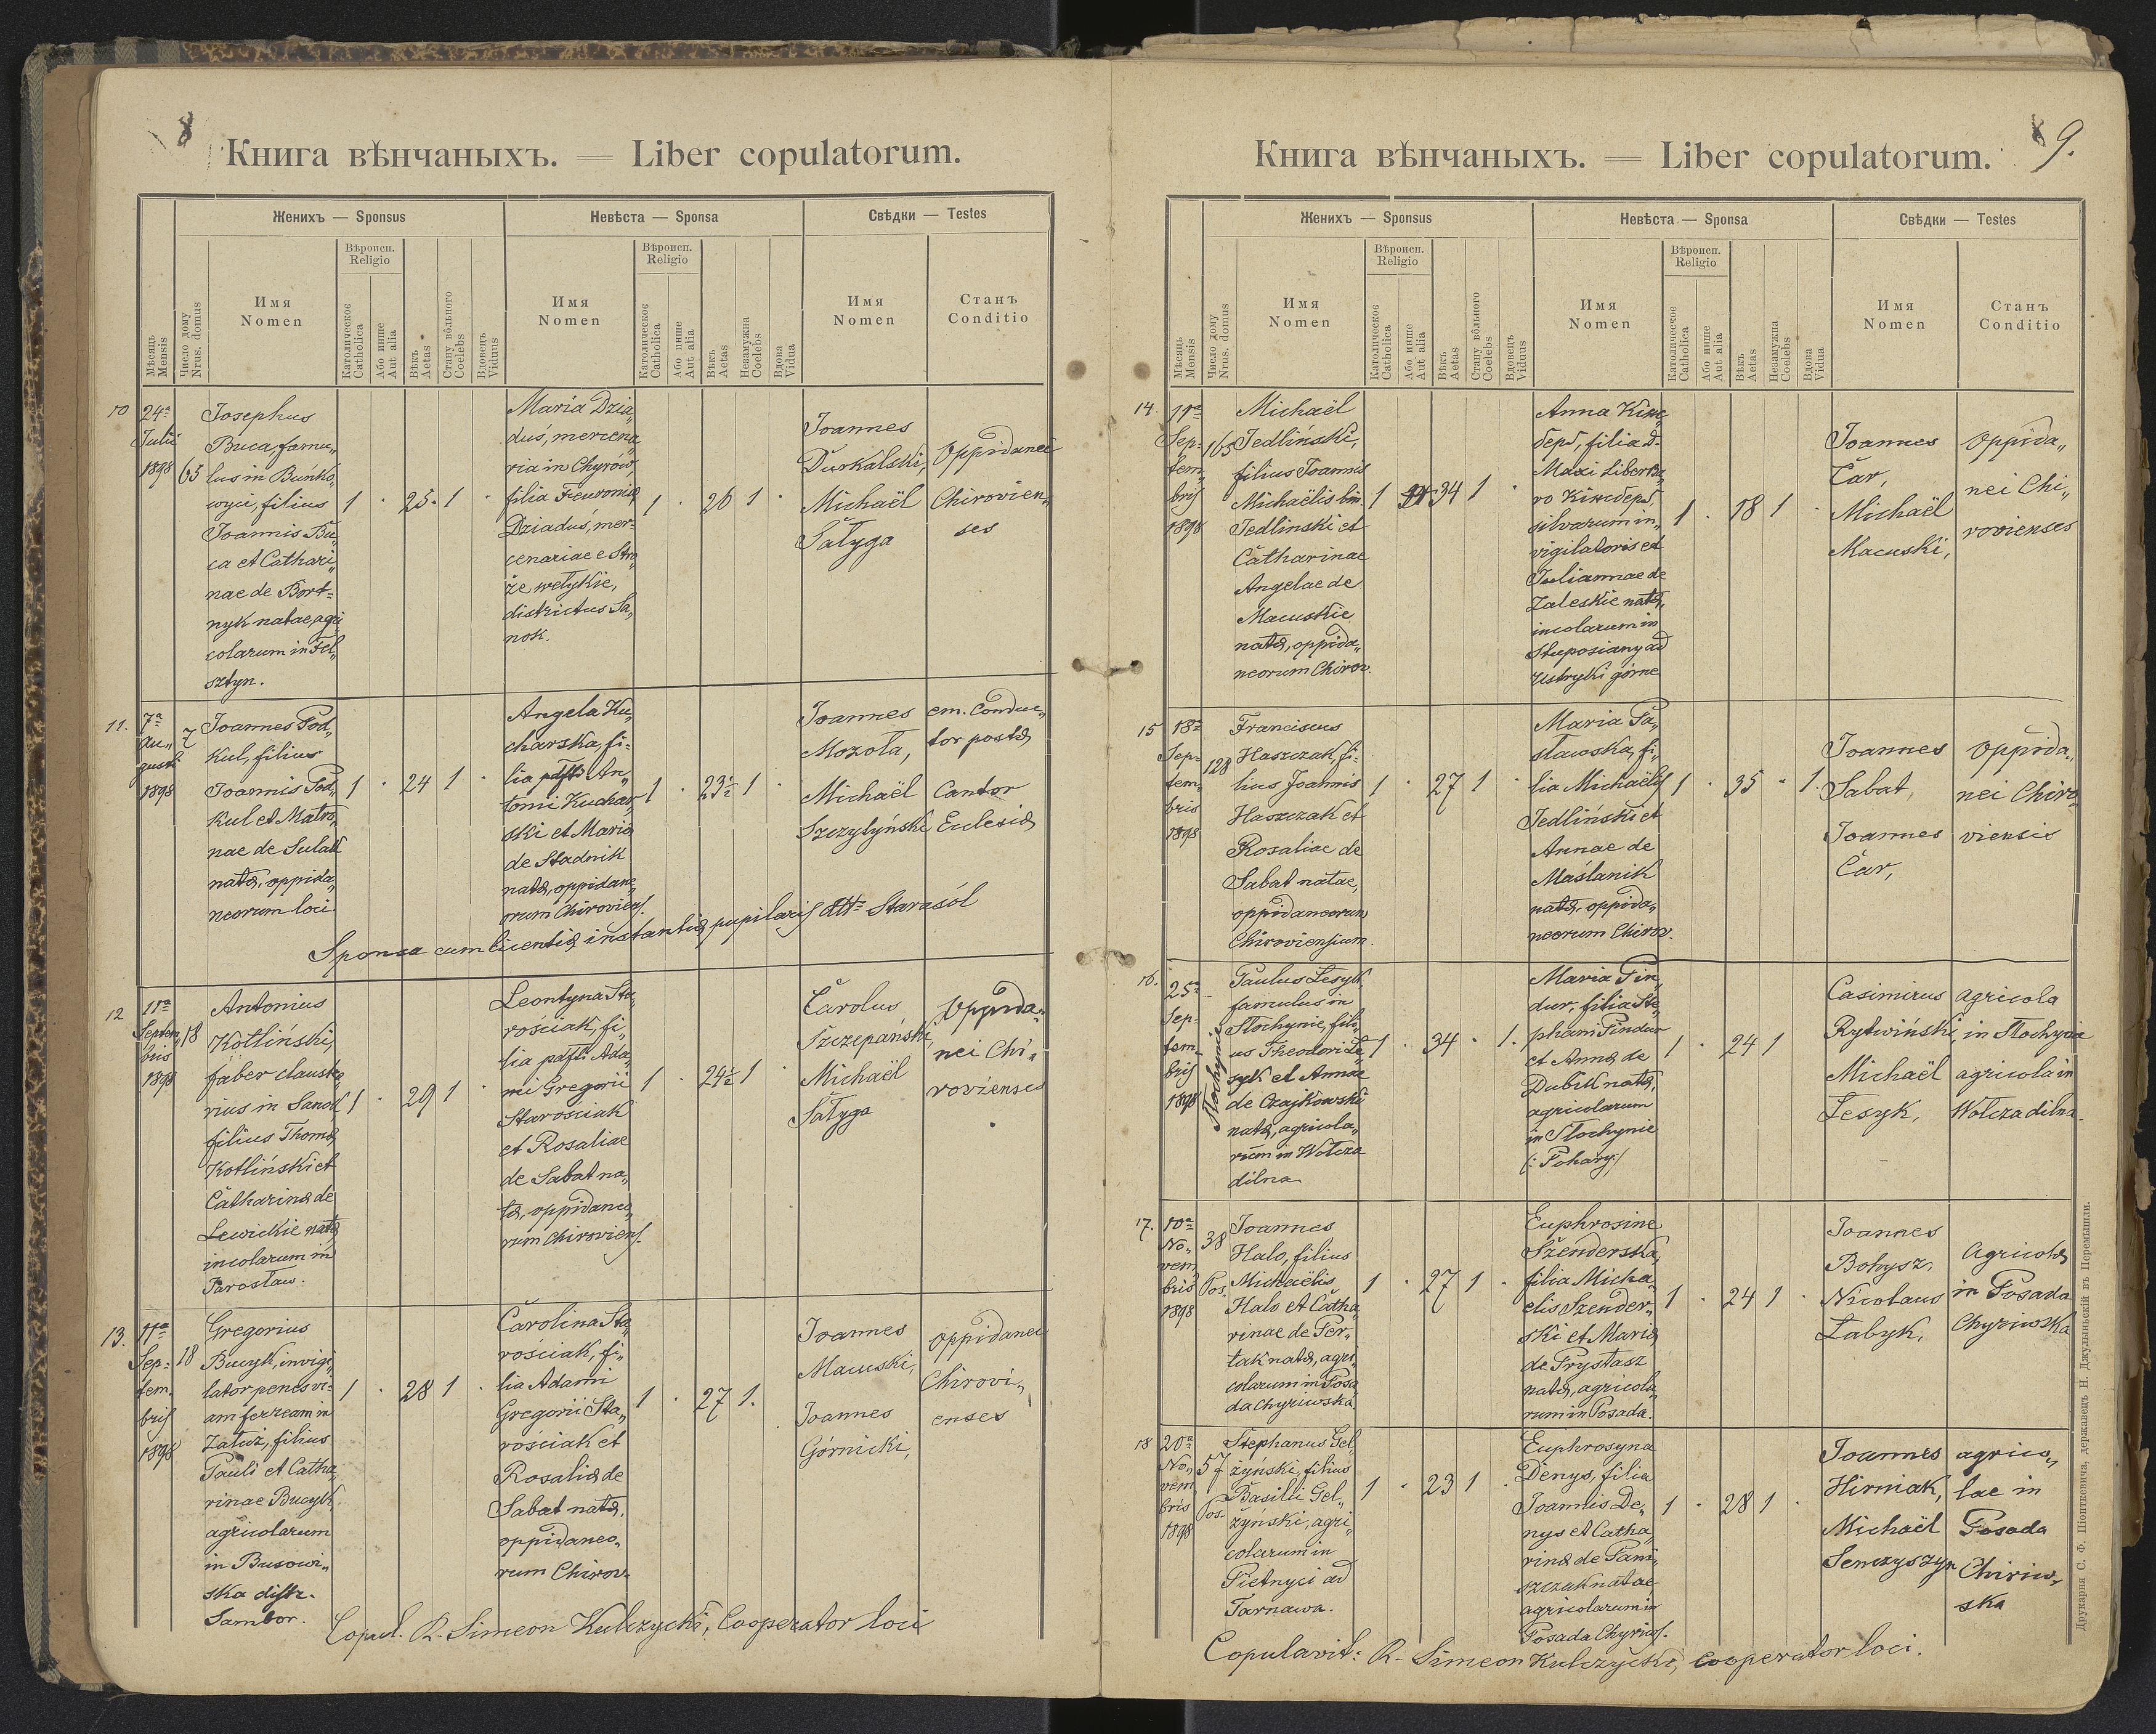 8
Книга вѣнчаныхъ. — Liber copulatorum.
Женихъ — Sponsus
Невѣста — Sponsa
Свѣдки — Testes
Мѣсяць Mensis
Число дому Nrus. domus
Имя
Nomen
Вѣроисп.
Religio
Католическое Catholica
Або инше Aut alia
Вѣкъ Aetas
Стану вôльного Coelebs
Вдовецъ Viduus
Имя
Nomen
Вѣроисп.
Religio
Католическое Catholica
Або инше Aut alia
Вѣкъ Aetas
Незамужна Coelebs
Вдова Vidua
Имя
Nomen
Станъ
Conditio
10
24ª
Julii
1898
63
Josephus
Buca, famu„
lus in Buńko„
wyci, filius
Joannis Bu„
ca et Cathari„
nae de Bort=
nyk natae, agri
colarum in Fel„
sztyn.
1 · 25 · 1 ·
Maria Dzia„
duś, mercena„
ria in Chyrów,
filia Fewroniæ
Dziaduś, mer=
cenariae e Stro
że wełykie,
districtus Sa„
nok.
1 · 26 1 ·
Joannes
Durkalski,
Michaël
Sałyga
Oppidanei
Chirovien„
ses
11.
7ª
Au„
gusti
1898
7
Joannes Pod„
kul, filius
Joannis Pod„
kul et Matro„
nae de Sulak
natæ, oppida„
neorum loci.
1 · 24 1 ·
Angela Ku„
charska, fi=
lia pdfti An„
tonii Kuchar„
ski et Mariæ
de Stadnik
natæ, oppidane„
orum Chiroviens.
1 · 23½ 1 ·
Joannes
Mozoła,
Michaël
Szczyłyński
em. Conduc„
tor postæ
Cantor
Eclesiæ
Sponsa cum licentiæ instantiæ pupilaris dtto Starasól
12
11ª
Septem„
bris
1898
18
Antonius
Kotliński,
faber claustra„
rius in Sanok
filius Thomæ
Kotliński et
Catharinæ de
Lewickie natæ
incolarum in
Jarosław.
1 · 29 1 ·
Leontyna Sta„
rościak, fi„
lia pdfti Ada„
mi Gregorii
Starościak
et Rosaliae
de Sabat na„
tæ, oppidaneo„
rum Chiroviens.
1 · 24½ 1 ·
Carolus
Szczepański,
Michaël
Sałyga
Oppida„
nei Chi„
rovienses
13.
11ª
Sep=
tem„
bris
1898
18
Gregorius
Bucyk, invigi„
lator penes vi=
am ferream in
Załuż, filius
Pauli et Catha„
rinae Bucyk
agricolarum
in Busowi„
ska distr.
Sambor.
1 · 28 1 ·
Carolina Sta„
rościak, fi„
lia Adami
Gregorii Sta„
rościak et
Rosaliæ de
Sabat natæ,
oppidaneo„
rum Chirov.
1 · 27 1.
Joannes
Macuski,
Joannes
Górnicki,
Oppidanei
Chirovi„
enses
Copul. R. Simeon Kulczycki, Cooperator loci
8 9.
Книга вѣнчаныхъ. — Liber copulatorum.
Женихъ — Sponsus
Невѣста — Sponsa
Свѣдки — Testes
Мѣсяць Mensis
Число дому Nrus. domus
Имя
Nomen
Вѣроисп.
Religio
Католическое Catholica
Або инше Aut alia
Вѣкъ Aetas
Стану вôльного Coelebs
Вдовецъ Viduus
Имя
Nomen
Вѣроисп.
Religio
Католическое Catholica
Або инше Aut alia
Вѣкъ Aetas
Незамужна Coelebs
Вдова Vidua
Имя
Nomen
Станъ
Conditio
14.
11ª
Sep=
tem„
bris
1898
165
Michaël
Jedliński,
filius Joannis
Michaëlis bin.
Jedlinski et
Catharinae
Angelae de
Macuskie
natæ, oppida„
neorum Chirov.
1 34 1 ·
Anna Кинс„
берґ, filia d.
Maxi Libera„
ro Кинсберґ,
silvarum in„
vigilatoris et
Juliannae de
Zaleskie natæ,
incolarum in
Stuposiany ad
Ustryki górne
1 · 18 1 ·
Joannes
Car,
Michaël
Macuski,
Oppida„
nei Chi„
rovienses
15
18ª
Sep=
tem„
bris
1898
128
Franciscus
Haszczak, fi„
lius Joannis
Haszczak et
Rosaliae de
Sabat natae,
oppidaneorum
Chiroviensium.
1 · 27 1 ·
Maria Pa„
sławska, fi„
lia Michaëlis
Jedliński et
Annae de
Maślanik
natæ, oppida„
neorum Chirov.
1 · 35 · 1.
Joannes
Sabat,
Joannes
Car,
Oppida„
nei Chiro„
viensis
16.
25ª
Sep=
tem„
bris
1898
Słochynie
Paulus Lesyk
famulus in
Słochynie, fili„
us Theodori Le„
syk et Annae
de Czajkowski
natæ, agricola„
rum in Wołcza
dilna
1 · 34 · 1.
Maria Pin„
dur, filia Ste„
phani Pindur
et Annæ de
Dubik natæ,
agricolarum
in Słochynie
(: Pohary:)
1 · 24 1
Casimirus
Rytwiński,
Michaël
Lesyk,
agricola
in Słochynie
agricola in
Wołcza dilna
17.
10ª
No„
vem„
bris
1898
38
Pos.
Joannes
Halo, filius
Michaëlis
Halo et Catha„
rinae de Per„
tak natæ, agri„
colarum in Posa„
da chyriwska
1 · 27 1 ·
Euphrosine
Szenderska,
filia Micha„
elis Szender„
ski et Mariæ
de Prystasz
natæ, agricola„
rum in Posada.
1 · 24 1 ·
Joannes
Bohysz,
Nicolaus
Łabyk,
Agricolæ
in Posada
Chyriwska
18
20ª
No„
vem„
bris
1898
57
Pos.
Stephanus Gel„
żyński, filius
Basilii Gel„
żynski, agri„
colarum in
Pietnyci ad
Tarnawa.
1 · 23 1 ·
Euphrosyna
Denys, filia
Joannis De„
nys et Catha„
rinæ de Pani„
szczak natae,
agricolarum in
Posada Chyriws.
1 · 28 1 ·
Joannes
Hirniak,
Michaël
Senczyszyn
agrico„
lae in
Posada
Chiriw„
ska
Copulavit: R. Simeon Kulczycki, cooperator loci.
Друкарня С. Ф. Піонткевича, державецъ Н. Джулыньскій въ Перемышли.